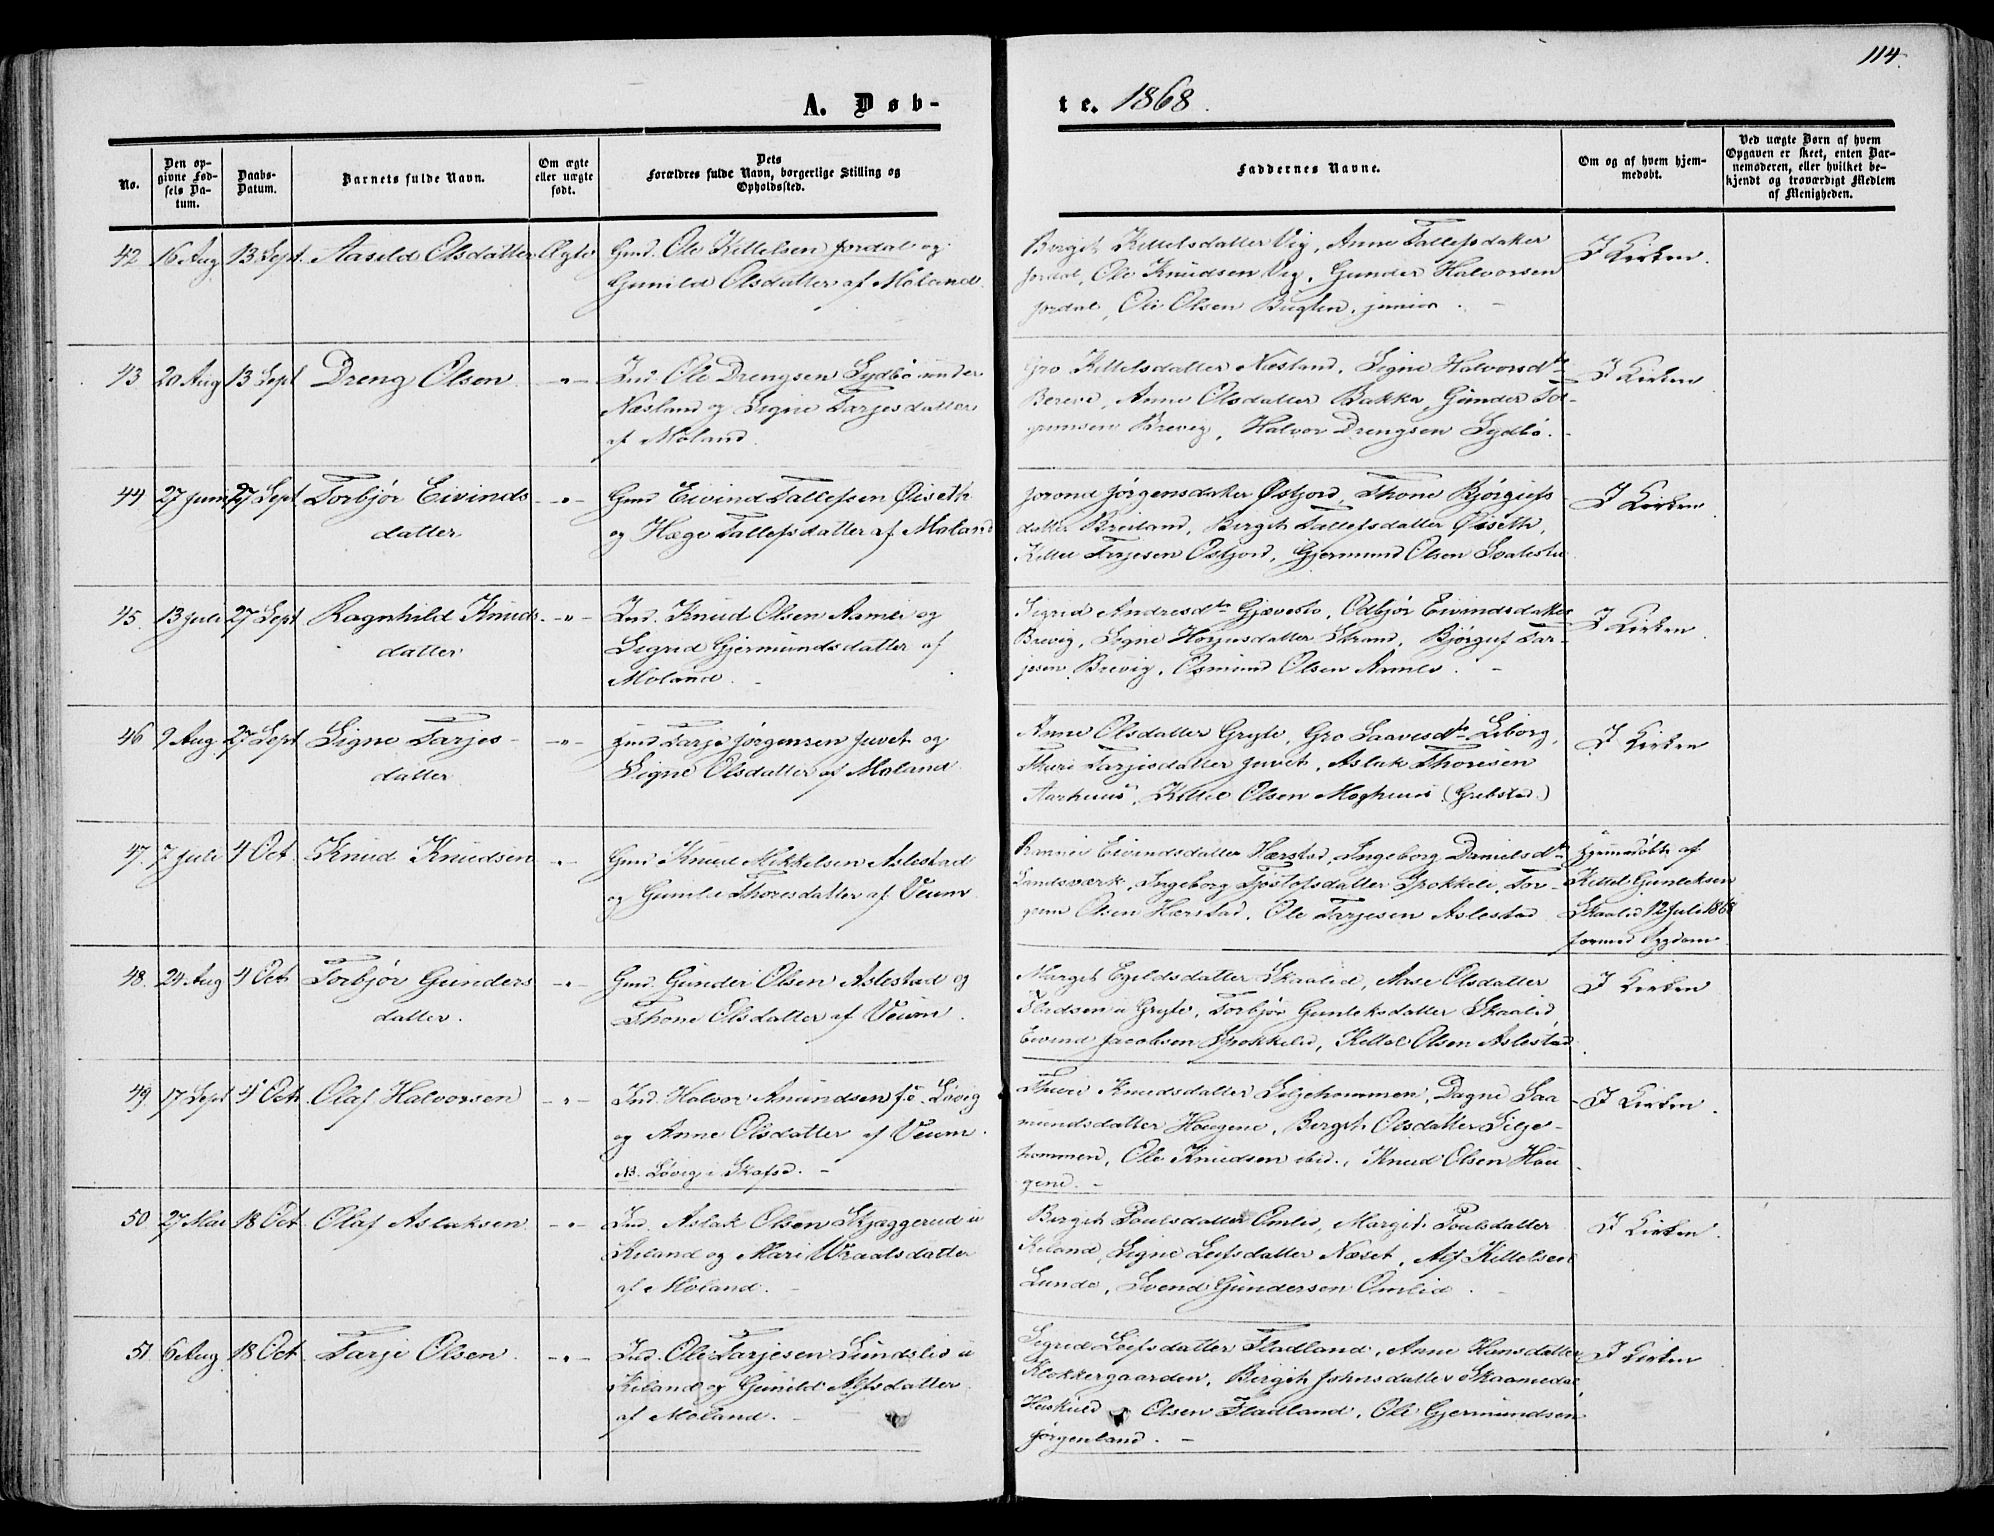 114.
A. Døb-
te. 1868.
No.
Den op-
givne Fød-
sels Da-
tum.
Daabs-
Datum.
Barnets fulde Navn.
Om ægte
eller uægte
født.
Dets
Forældres fulde Navn, borgerlige Stilling og
Opholdssted.
Faddernes Navne.
Om og af hvem hjem-
medøbt.
Ved uægte Børn af hvem
Opgaven er skeet, enten Bar-
nemoderen, eller hvilket be-
kjendt og troværdigt Medlem
af Menigheden.
42 16 Aug 13 Sept. Aasild Olsdatter Ægte Gmd. Ole Kittelsen Jordal og
Gunild Olsdatter af Moland.
Bergit Kittelsdatter Vig, Anne Tallefsdatter
Jordal, Ole Knudsen Vig, Gunder Halvorsen
Jordal, Ole Olsen Bugten, junior. -
I Kirken.
43 20 Aug 13 Sept Dreng Olsen. -"- Ind. Ole Drengsen Lydbö under
Næsland og Signe Tarjesdatter
af Moland.
Gro Kittelsdatter Næsland, Signe Halvorsdtr
Bereve, Anne Olsdatter Bakka, Gunder Tor-
grimsen Brevig, Halvor Drengsen Lydbö.
I Kirken
44 27 Juni 27 Sept Torbjör Eivinds-
datter
-"- Gmd Eivind Tallefsen Öiseth
og Hæge Tallefsdatter af Moland
Jorond Jörgensdatter Östjord, Thone Björgufs
datter Breiland, Bergit Tallefsdatter Öiseth,
Kittil Tarjesen Ostjord, Gjermund Olsen
I Kirken
45. 13 Juli 27 Sept Ragnhild Knuds-
datter
-"- Ind. Knud Olsen Aamli og
Sigrid Gjermundsdatter af
Moland. -
Sigrid Andresdtr Gjævesto, Odbjör Eivindsdatter
Brevig, Signe datter Strand, Björguf Tar-
jesen Brevig, Osmund Olsen Aamli. -
I Kirken
46 9 Aug. 27 Sept Signe Tarjes-
datter
-"- Gmd Tarje Jörgensen Juvet og
Signe Olsdatter af Moland
Anne Olsdatter Gryte, Gro Saavesdtr Liborg,
Thuri Tarjesdatter Juvet, Aslak Thoresen
Aarhuus, Kittil Olsen Moghuus (Grebstad.)
I Kirken
47. 7 Juli 4 Oct. Knud Knudsen -"- Gmd. Knud Mikkelsen Aslestad
og Gunild Thoresdatter af Veum
Eivendsdatter Hærstad, Ingeborg Danielsdtr
Landsværk, Ingeborg Tjöstofsdatter Spokkeli, Tor-
grim Olsen Hærstad, Ole Tarjesen Aslestad
Hjemmedöbt af
Kittel Gunleksen
Skaalid 12 Juli 1868
formed. Sygdom.
48. 24 Aug 4 Oct Torbjör Gunders
datter.
-"- Gmd. Gunder Olsen Aslestad og
Thone Olsdatter af Veum.
Margit Egildsdatter Skaalid, Aase Olsdatter
u Gryte, Torbjör Gunleksdatter Skaalid
Eivind Jacobsen Spokkelid, Kittel Olsen Aslestad.
I Kirken
49. 17 Sept 4 Oct Olaf Halvorsen -"- Ind. Halvor Amundsen fö. Lövig
og Anne Olsdatter af Veum.
NB. Lövig i Skafså. -
Thuri Knudsdatter Liljehommen, Dagne Saa-
mundsdatter Hougene, Bergit Olsdatter Lilje-
hommen, Ole Knudsen ibid., Knud Olsen Hou-
gene. -
I Kirken.
50. 27 Mai 18 Oct Olaf Aslaksen -"- Ind. Aslak Olsen Skjæggerud u
Kiland og Mari Wraalsdatter
af Moland. -
Bergit Poulsdatter Omlid, Margit Poulsdatter
Kiland, Signe Leifsdatter Næset, Alf Kittelsen
Lunde, Svend Gundersen Omlid. -
I Kirken.
51. 6 Aug. 18 Oct. Tarje Olsen. -"- Ind. Ole Tarjesen Lundslid u
Kiland og Gunild Alfsdatter
af Moland. -
Sigrid Leifsdatter Fladland, Anne Hansdatter
Klokkergaarden, Bergit Johnsdatter Skaamedal,
Olsen Fladland, Ole Gjermundsen
Jörgenland. -
I Kirken